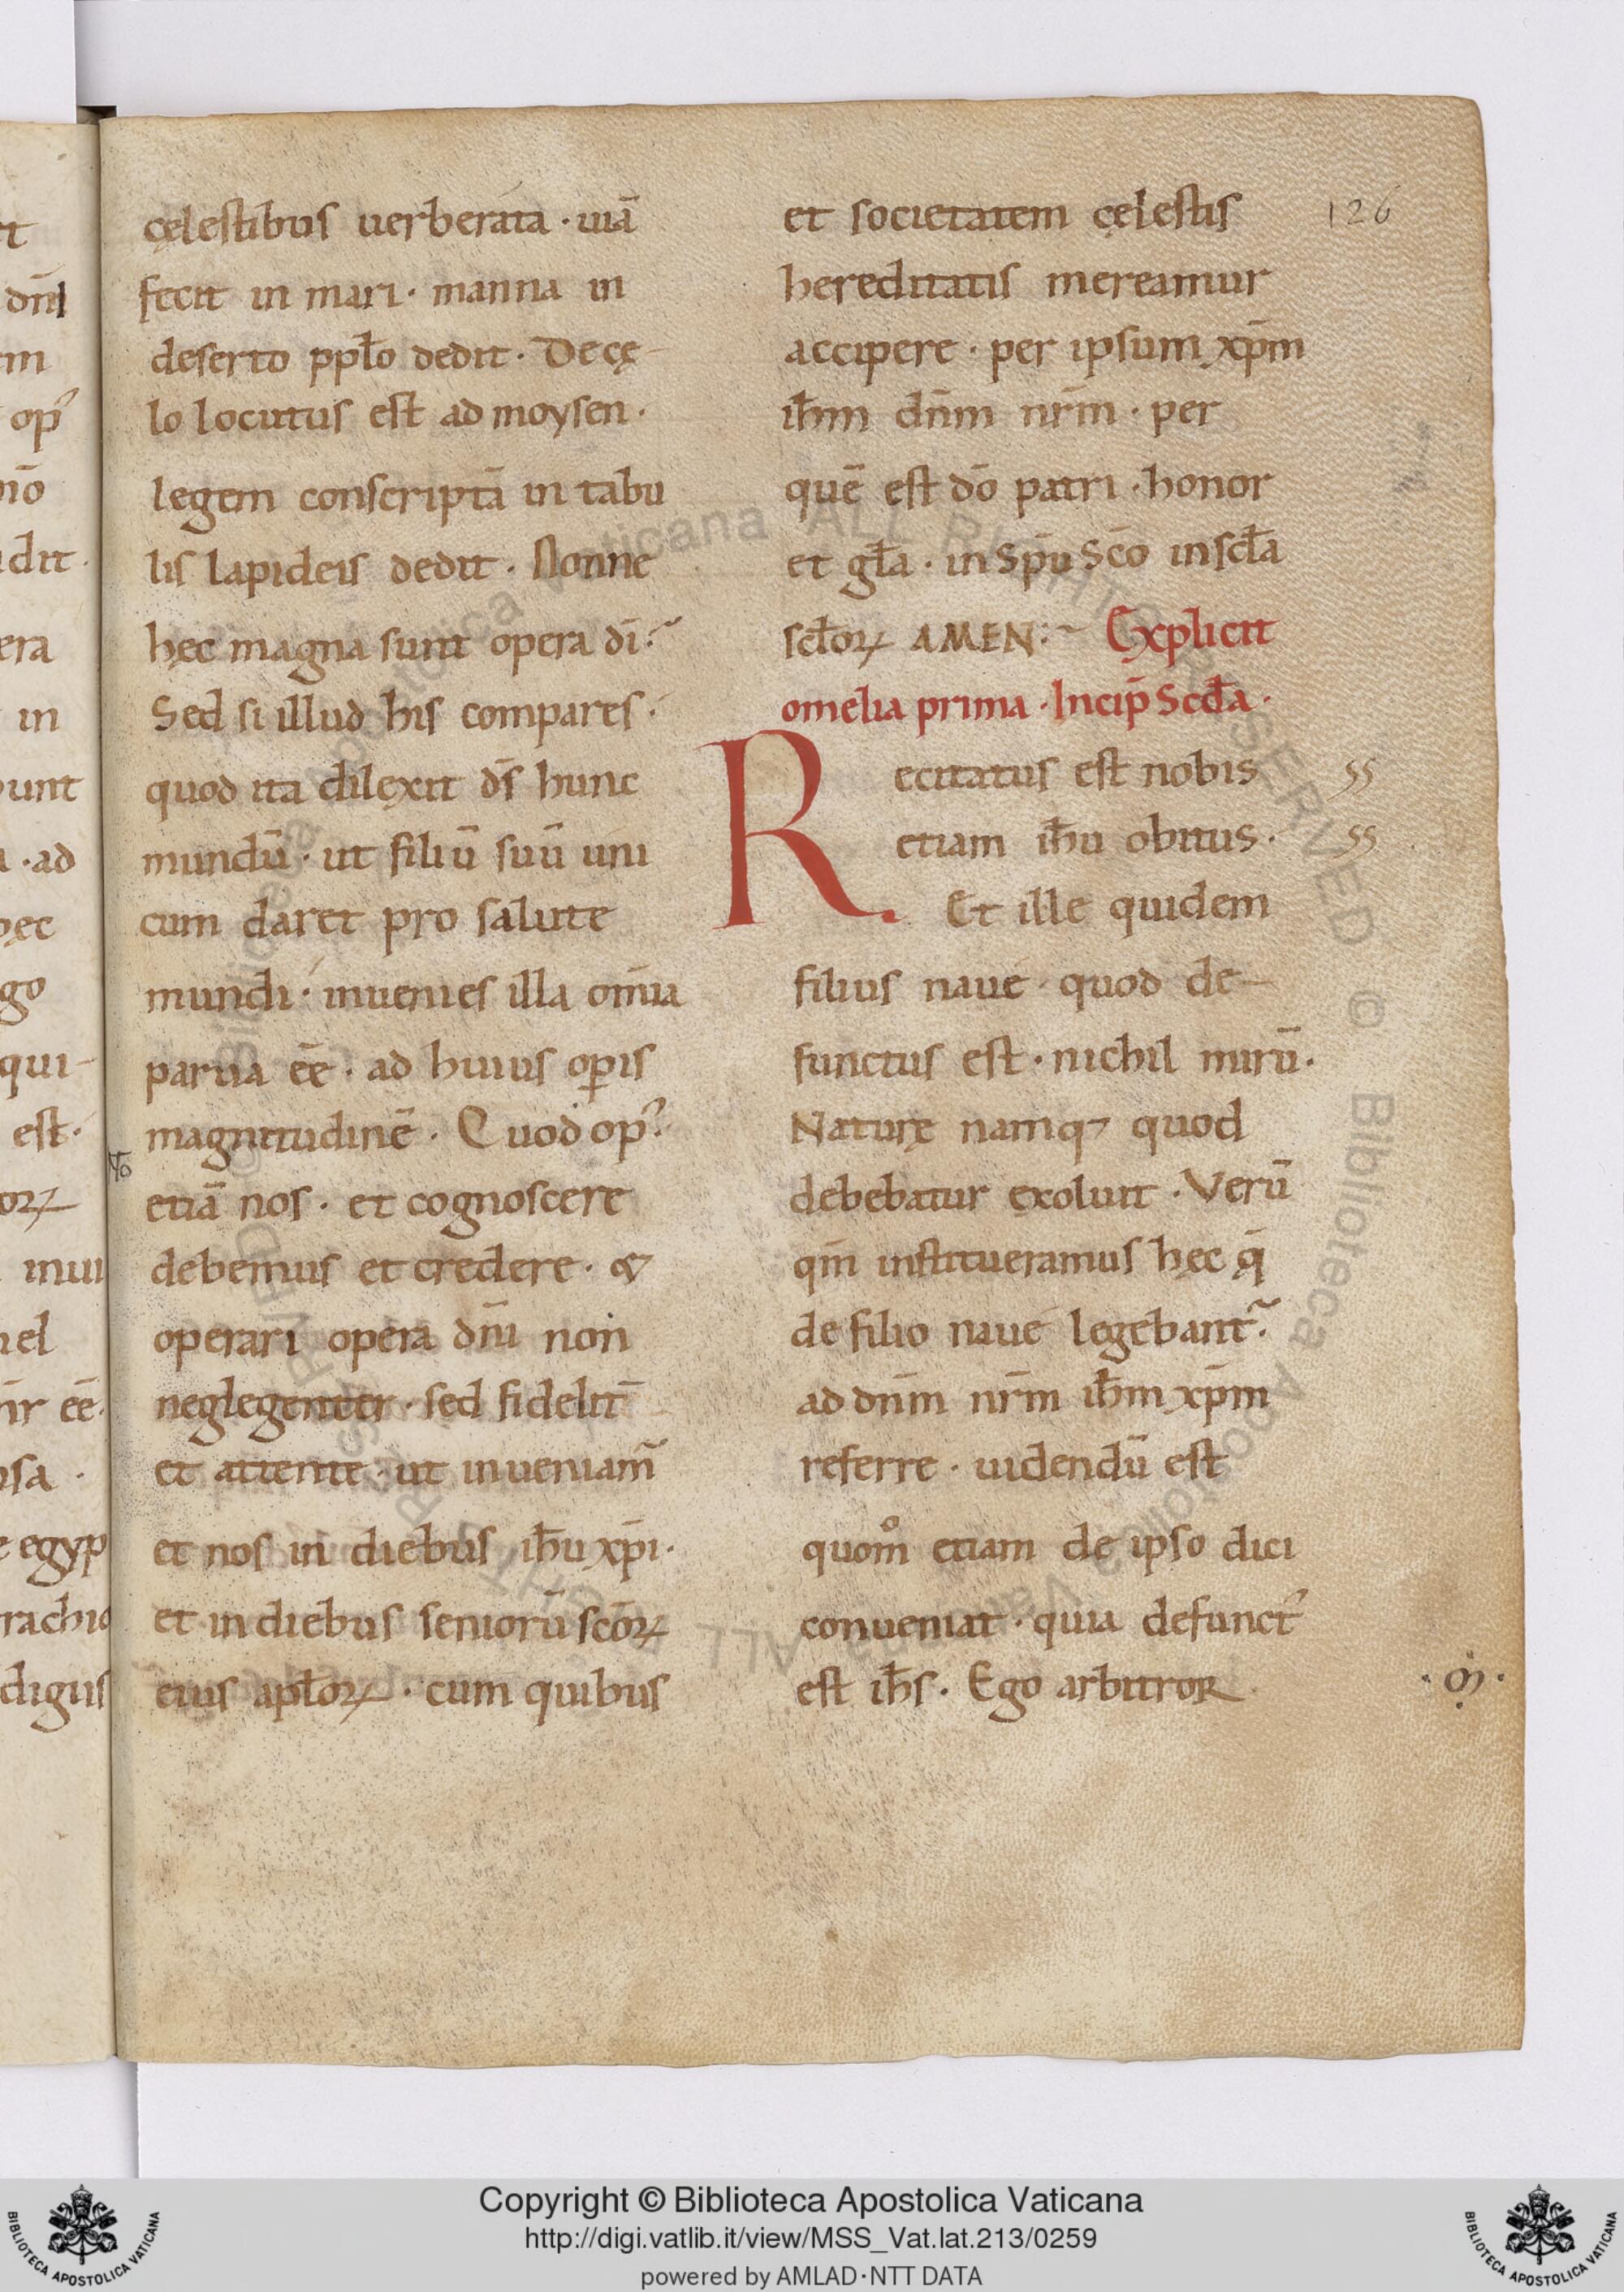 cęlestibus uerberata · uiā
fecit in mari · manna in
deserto pp̄lo dedit · De cę
lo locutus est ad moysen ·
legem conscriptā in tabu
lis lapideis dedit · Nonne
hęc magna sunt opera dī ·
Sed si illud his compares ·
quod ita dilexit ds̄ hunc
mundū · ut filiū suū uni
cum daret pro salute
mundi · inuenies illa om̄ia
parua eē · ad huius op̲is
magnitudinē · Quod opꝰ ·
etiā nos · et cognoscere
debemus et credere · &
operari opera dn̄i non
neglegenter · sed fidelit̄
et attente · ut inueniam̃
et nos in diebus ih̄u xp̄i ·
et in diebus seniorū sc̄oꝝ
eius apl̄oꝝ · cum quibus
et societatem cęlestis
hereditatis mereamur
accipere · per ipsum xp̄m
ih̄m dn̄m nr̄m · per
quē est dō patri · honor
et gl̄a · in Sp̄u Sc̄o in scl̄a
scl̄oꝝ AMEN :~ Explicit
omelia prima · Incip̄ Scd̄a ·
Recitatus est nobis
etiam ih̄u obitus ·
Et ille quidem
filius naue · quod de-
functus est · nichil mirū ·
Naturę namq; quod
debebatur exoluit · Verū
qm̄ institueramus hęc q̄
de filio naue legebant̃ ·
ad dn̄m nr̄m ih̄m xp̄m
referre · uidendū est
quom̊ etiam de ipso dici
conueniat · quia defunctꝰ
est ih̄s · Ego arbitror
126
ss
ss
t
dn̄i
m
opꝰ
dit ·
era
in
unt
· ad
hęc
go
qui-
est ·
oꝝ
inui
el
eē ·
sa ·
egyp
rachio
digus
© Biblioteca Apostolica Vaticana ALL RIGHTS RESERVED
Copyright © Biblioteca Apostolica Vaticana
http://digi.vatlib.it/view/MSS_Vat.lat.213/0259
powered by AMLAD·NTT DATA
BIBLIOTECA APOSTOLICA VATICANA
BIBLIOTECA APOSTOLICA VATICANA